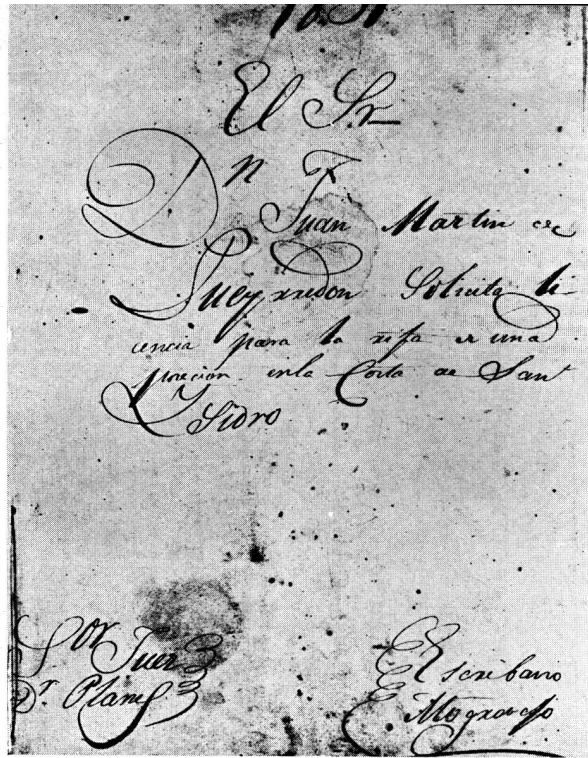 El Sr
Dn
Juan Martin de
Pueyrredon Solicita li-
cencia para la rifa de una
posecion en la Costa de San
Ysidro
Sor Juez
Dr. Planes
Escribano
Mogrovejo